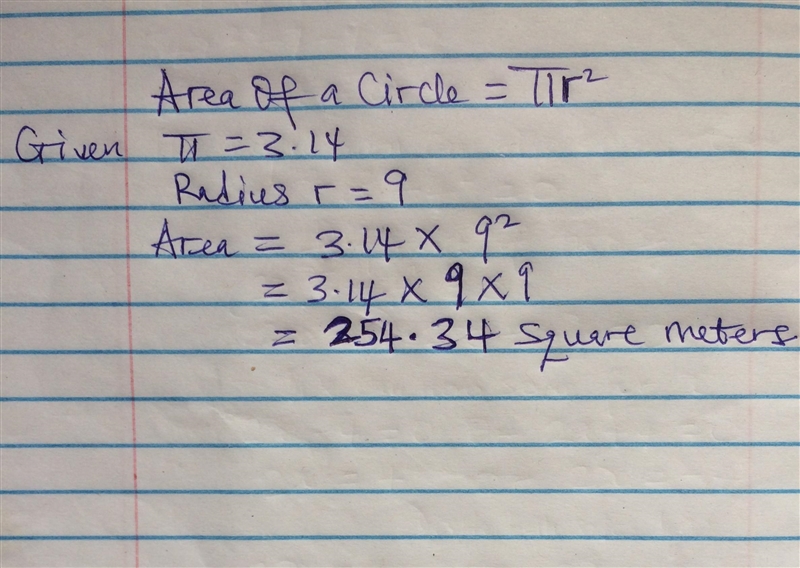 Area Of a Circle = πr²
Given π = 3.14
Radius r = 9
Area = 3.14 × 9²
= 3.14 × 9 × 9
= 254.34 Square meters